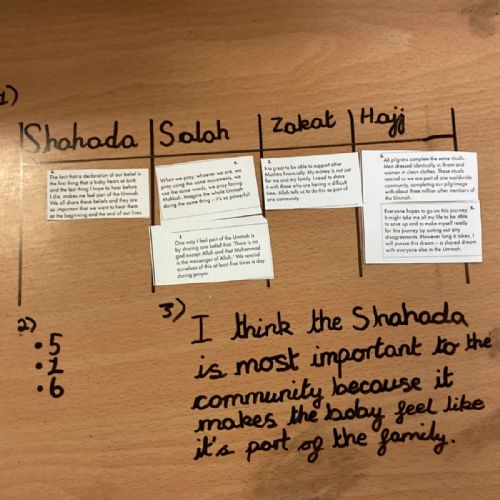 1)
Shahada Salah Zakat Hajj
4.
The fact that a declaration of our belief is
the first thing that a baby hears at birth
and the last thing I hope to hear before
I die, makes me feel part of the Ummah.
We all share these beliefs and they are
so important that we want to hear them
at the beginning and the end of our lives.
6.
When we pray, whoever we are, we
pray using the same movements, we
use the same words, we pray facing
Makkah. Imagine the whole Ummah
doing the same thing – it's so powerful!
1.
One way I feel part of the Ummah is
by sharing one belief that 'There is no
god except Allah and that Muhammad
is the messenger of Allah.' We remind
ourselves of this at least five times a day
during prayer.
2.
It is great to be able to support other
Muslims financially. My money is not just
for me and my family. I need to share
it with those who are having a difficult
time. Allah tells us to do this as part of
one community.
All pilgrims complete the same rituals.
Men dressed identically in Ihram and
women in clean clothes. These rituals
remind us we are part of one worldwide
community, completing our pilgrimage
with about three million other members of
the Ummah.
5.
Everyone hopes to go on this journey.
It might take me all my life to be able
to save up and to make myself ready
for this journey by sorting out any
disagreements. However long it takes, I
will pursue this dream – a shared dream
with everyone else in the Ummah.
2)
• 5
• 1
• 6
3)
I think the Shahada
is most important to the
community because it
makes the baby feel like
it's part of the family.